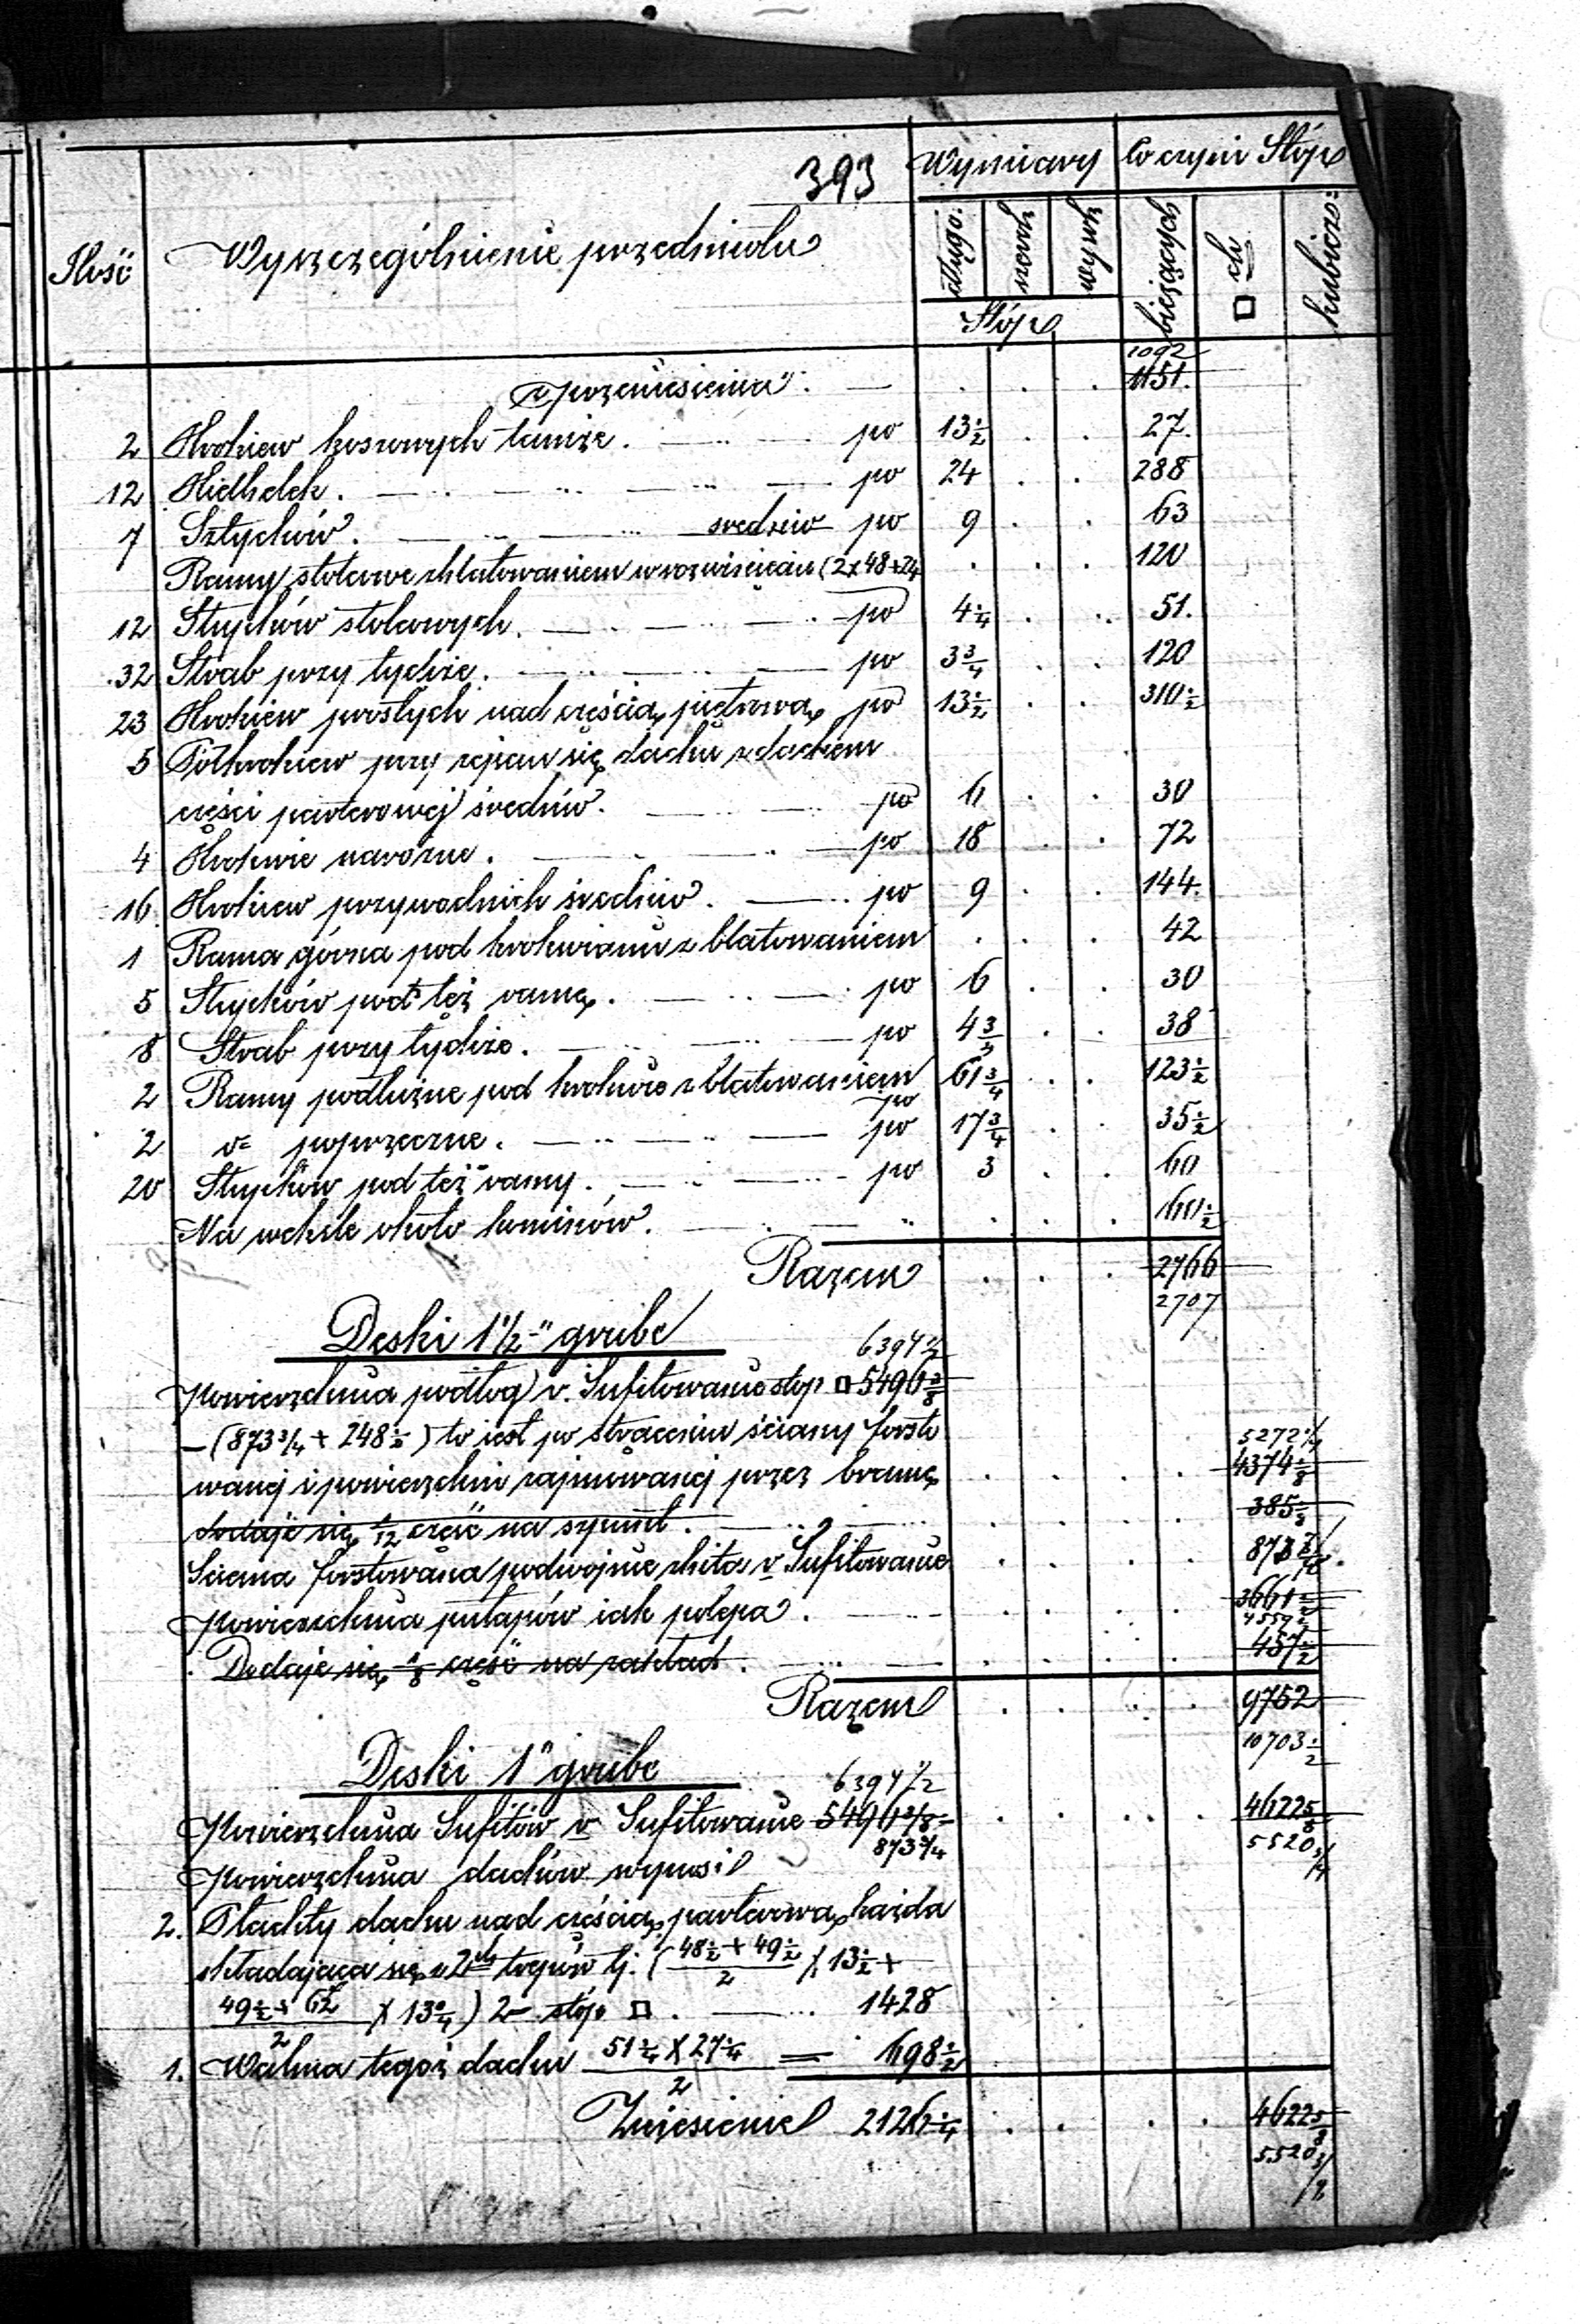 393
Wymiary Co czyni Stóp
Ilość Wyszczególnienie przedmiotu długo: szerok wysok bieżących □ch kubiczn:
Stóp
1092
z przeniesienia 1151.
2 Krokiew koszowych tamże. po 13½ 27.
12 Kielbelek. po 24 288
7 Sztychów. średnio po 9 63
Ramy stolcowe z blatowaniem w rozwinięciu (2x48+24 120
12 Słupków stolcowych. po 4¼ 51.
32 Strab przy tychże. po 3¾ 120
23 Krokiew prostych nad częścią piętrową po 13½ 310½
5 Półkrokiew przy zejściu się dachu z dachem
części parterowej średnio. po 6 30
4 Krokwie narożne. po 18 72
16 Krokiew przypadnich średnio. po 9 144.
1 Rama górna pod krokwiami z blatowaniem 42
5 Słupków pod też ramę. po 6 30
8 Strab przy tychże. po 4¾ 38
2 Ramy podłużne pod krokwie z blatowaniem po 61¾ 123½
2 d= poprzeczne. po 17¾ 35½
20 Słupków pod też ramy. po 3 60
Na wekśle około kominów. 60½
Razem 2766
2707
Deski 1½" grube 6394½
Powierzchnia podłog v. Sufitowanie stop □ 5496⅜
-(873¾ + 248½) to iest po strąceniu ściany forszto 5272¼
wanej i powierzchni zajmowanej przez bramę 4374⅛
dodaje się 1/12 część na szpunt. 385
Ściana forsztowana podwójnie zbita v Sufitowanie 873
Powierzchnia pułapów iak polepa. 3661
4559
Dodaje się ⅛ część na zakład. 457½
Razem 9752
10703½
Deski 1" grube 6394½
Powierzchnia Sufitów v Sufitowanie 5496⅜- 4622⅝
873¾ 5520¾
Powierzchnia dachów wynosi
2. Płachty dachu nad częścią parterową każda
składająca się z 2ch trapów tj. (48½ + 49½ / 2 X 13½ +
49½ + 62 / 2 X 13¾) 2= stóp □. 1428
1. Walma tegoż dachu 51¼ X 27¼ / 2 = 698½
Zniesienie 2126¼ 4622⅝
5520